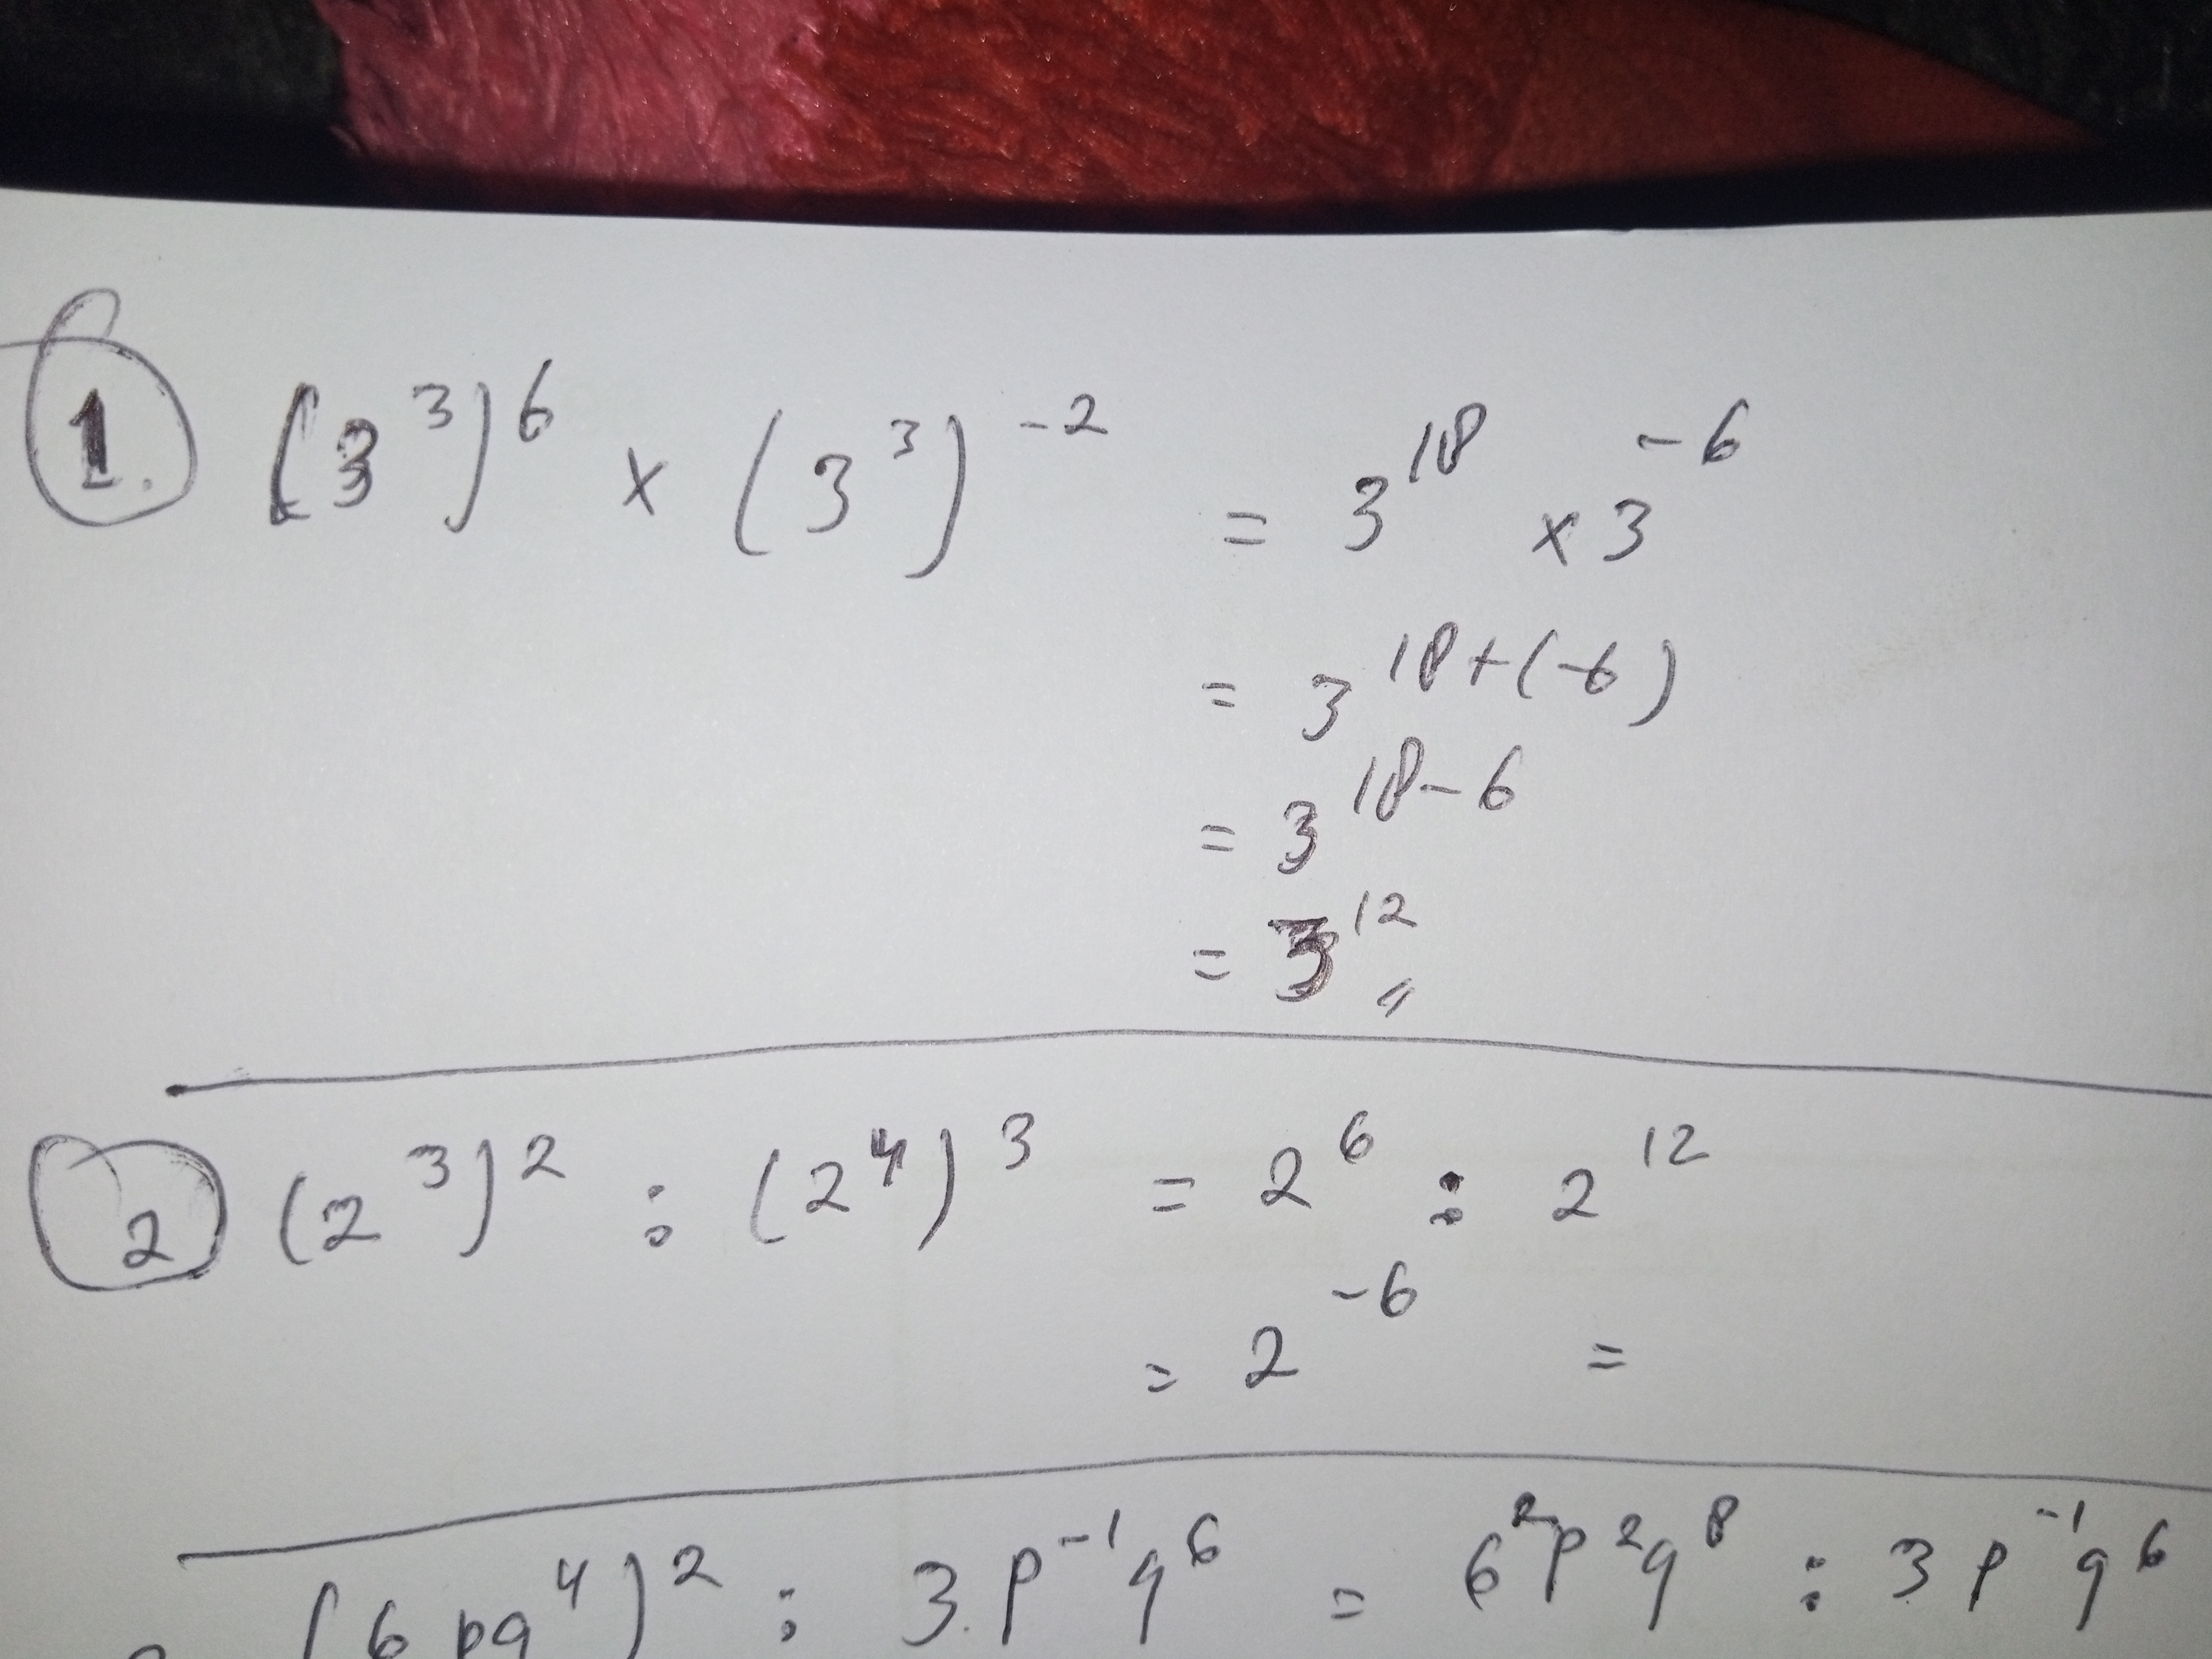 1. (3³)⁶ × (3³)⁻² = 3¹⁸ × 3⁻⁶
= 3¹⁸⁺⁽⁻⁶⁾
= 3¹⁸⁻⁶
= 3¹²
2 (2³)² : (2⁴)³ = 2⁶ : 2¹²
= 2⁻⁶ =
(6pq⁴)² : 3.p⁻¹q⁶ = 6²p²q⁸ : 3p⁻¹q⁶